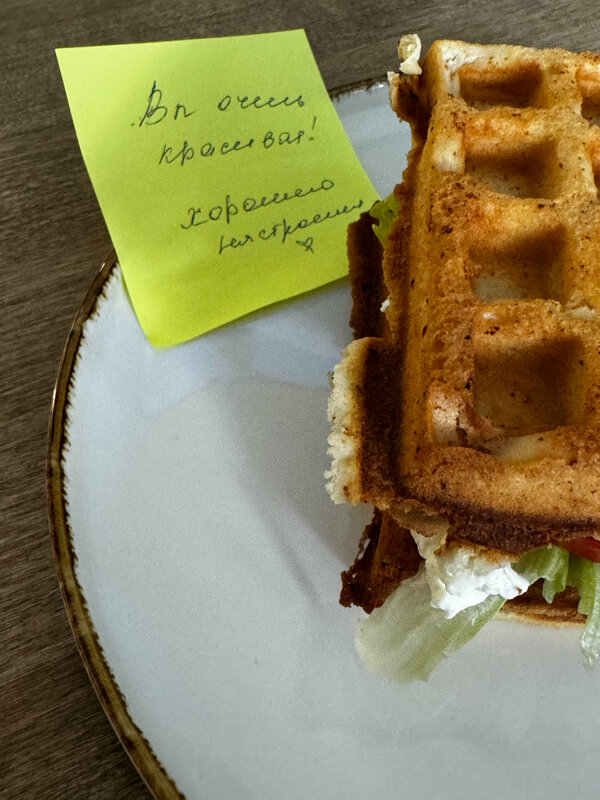 Вы очень
красивая!
хорошего
настроения